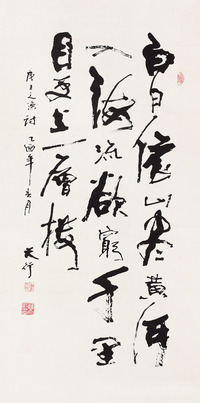 白日依山尽黄河
入海流欲穷千里
目更上一層楼
唐王之渙詩 乙酉年
天行